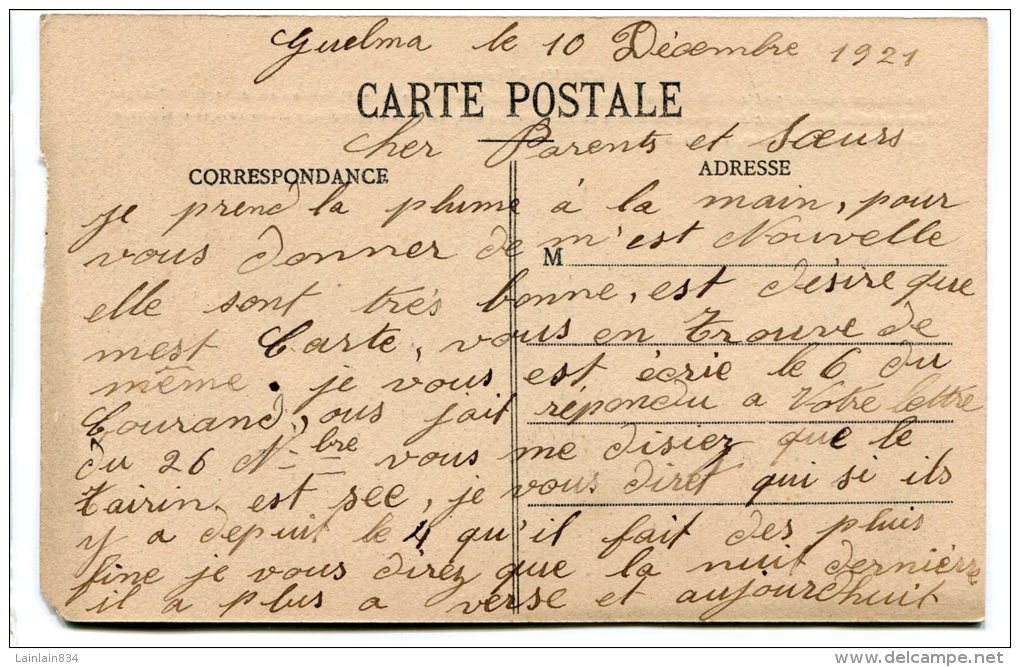 Guelma le 10 Décembre 1921
CARTE POSTALE
Cher Parents et Sœurs
CORRESPONDANCE
ADRESSE
je prend la plume à la main, pour
vous donner de m'est Nouvelle
M
elle sont très bonne, est désire que
mest Carte, vous en trouve de
même. je vous est écrie le 6 du
Courand, ous jait répondu a Votre lettre
du 26 N-bre vous me disiez que le
tairin est sec, je vous diret qui si ils
y a depuit le 4 qu'il fait des pluis
fine je vous direz que la nuit dernière
il a plus a verse et aujourdhuit
Lainlain834
delcampe.net